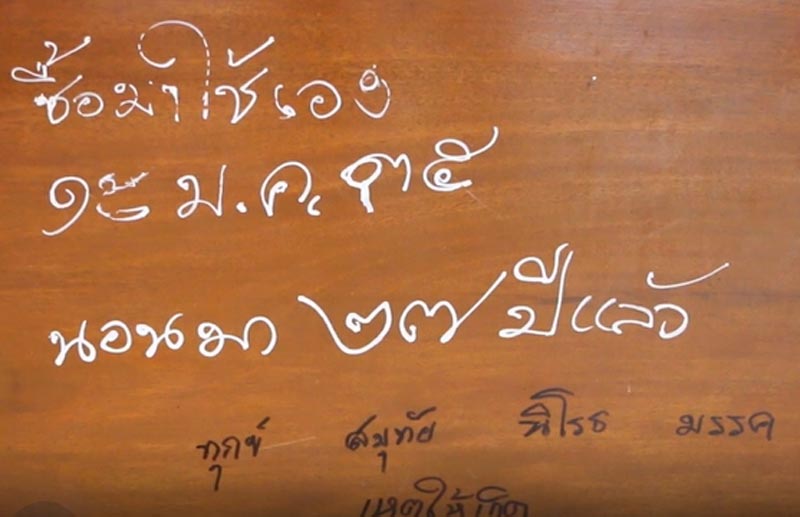 ซื้อมาใช้เอง
ม.ค. ๓๕
นอนมา ๒๗ ปีแล้ว
ทุกข์ สมุทัย นิโรธ มรรค
เหตุให้เกิด